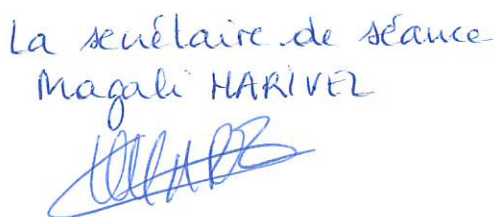 La secrétaire de séance
Magali HARIVEL